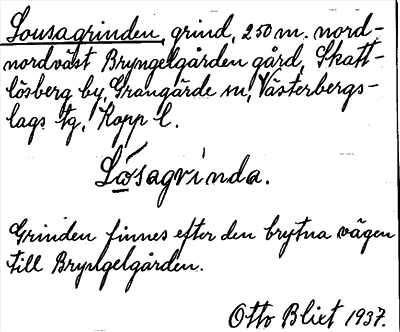 Lousagrinden, grind, 250 m. nord-
nordväst Bryngelgården gård, Skatt-
lösberg by, Grangärde sn, Västerbergs-
lags tg, Kopp l.
Lósagrinda.
Grinden finnes efter den brytna vägen
till Bryngelgården.
Otto Blixt 1937.